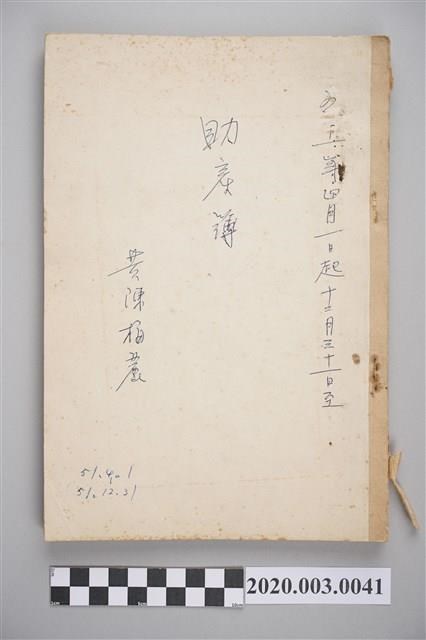 五十一年四月一日起十二月三十一日至
助產簿
黃陳梅麗
51.4.1
51.12.31
1cm 5cm 10cm
2020.003.0041